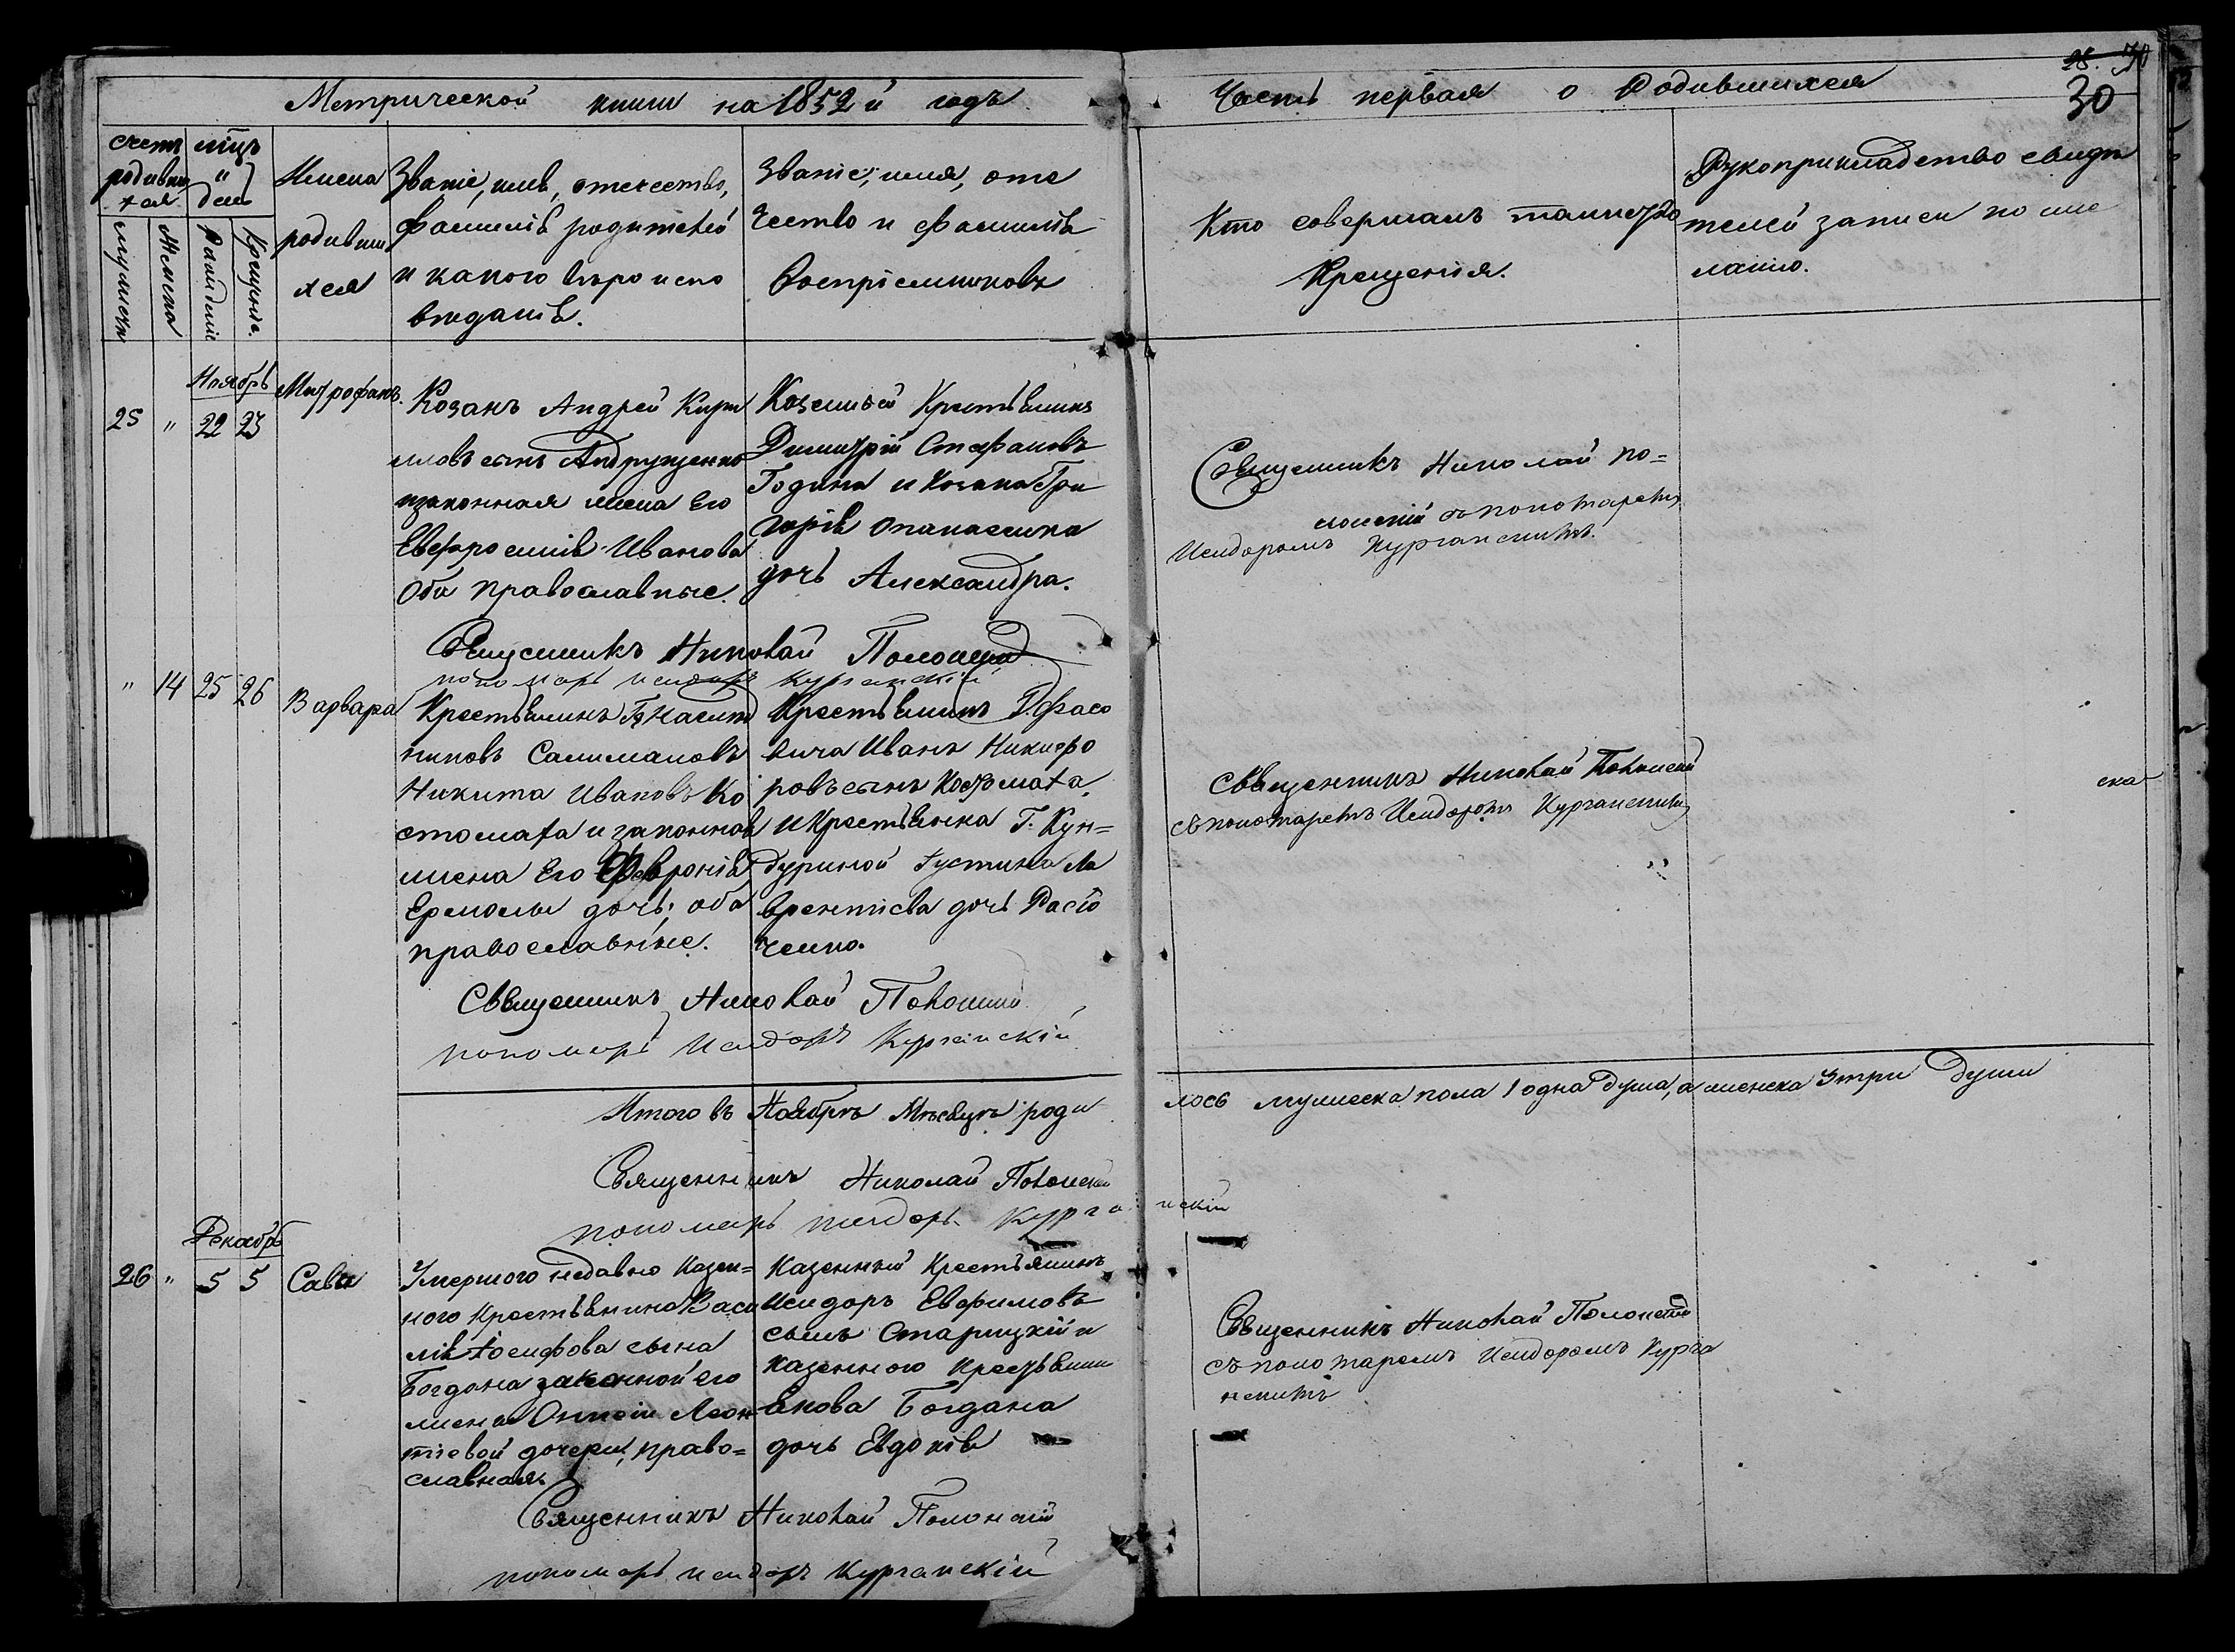 Метрической книги на 1852й годъ
Часть первая о Родившихся
30
счетъ родивши хся
мцъ и день
мужеска
женска
Рожденіе
Крещеніе.
Имена
родивши
хся
Званіе, имѣ, отечество,
фамилія родителей
и какого вѣроиспо
вѣданія.
Званіе, имя, оте
чество и фамилія
Воспріемниковъ
Кто совершалъ таинство
Крещенія.
Рукоприкладство свидѣ
телей записи по же
ланію.
Ноябрь
25 " 22 23
Митрофанъ.
Козакъ Андрей Кири
ловъ сынъ Андрущенко
изаконная жена Его
Евфросинія Иванова
Оба православные.
Казенный Крестьянинъ
Димитрій Стефановъ
Година и Козака Гри
горія Опанасенка
дочь Александра.
Священникъ Николай По=
лонскій съ пономаремъ
Исидоромъ Курганскимъ.
Священникъ Николай Полонскій
пономарь Исидоръ Курганскій
" 14 25 26
Варвара
Крестьянинъ
Никита Ивановъ Ко
стомаха и законная
жена Его Февронія
Ермолы дочь; оба
православные.
Крестьянинъ
вича Иванъ Никифо
ровъ сынъ Костомаха,
и Крестьянка Г. Кун=
дуриной Густина Ла
врентіева дочь
ченко.
Священникъ Николай Полонскій
съ пономаремъ Исидоромъ Курганскимъ
ска
Священникъ Николай Полонскій
пономарь Исидоръ Курганскій
Итого въ Ноябрѣ Мѣсяцѣ роди
лось мужеска пола 1 одна душа, а женска 3 три души
Священникъ Николай Полонскій
пономарь Исидоръ Курга нскій
Декабрь
26 " 5 5
Сава
Умершого недавно Казен=
ного Крестьянина Васи
лія Іосифова сына
Богдана законной его
жены Леон
тіевой дочери, право=
славная
Казенный Крестьянинъ
Исидоръ Евфимовъ
сынъ Старицкій и
казенного Крестьянина
Якова Богдана
дочь Евдокія
Священникъ Николай Полонскій
съ пономаремъ Исидоромъ Курга
нскимъ
Священникъ Николай Полонскій
пономарь Исидоръ Курганскій